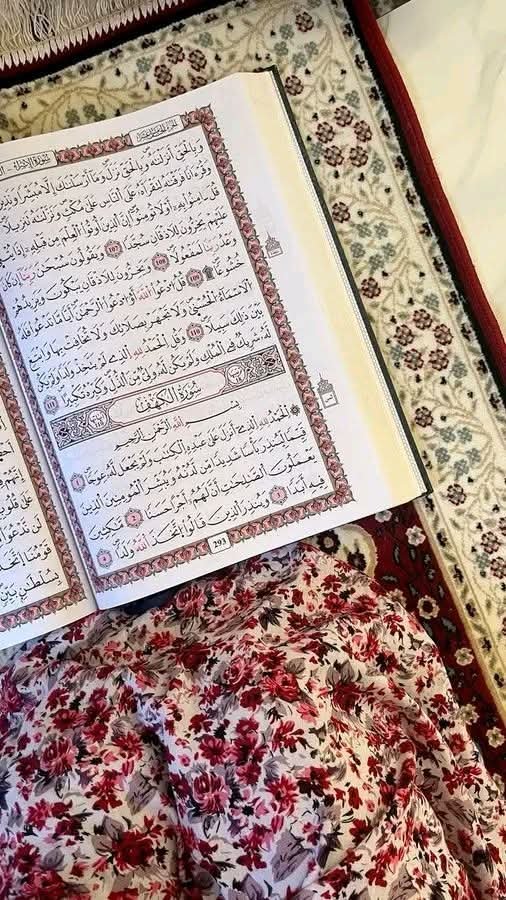 الجزء الخامس عشر
سورة الإسراء
وَبِٱلْحَقِّ أَنزَلْنَٰهُ وَبِٱلْحَقِّ نَزَلَ ۗ وَمَآ أَرْسَلْنَٰكَ إِلَّا مُبَشِّرًا
وَقُرْءَانًا فَرَقْنَٰهُ لِتَقْرَأَهُۥ عَلَى ٱلنَّاسِ عَلَىٰ مُكْثٍ وَنَزَّلْنَٰهُ تَنزِيلًا
قُلْ ءَامِنُوا۟ بِهِۦٓ أَوْ لَا تُؤْمِنُوٓا۟ ۚ إِنَّ ٱلَّذِينَ أُوتُوا۟ ٱلْعِلْمَ مِن قَبْلِهِۦٓ إِذَا
عَلَيْهِمْ يَخِرُّونَ لِلْأَذْقَانِ سُجَّدًا ١٠٧ وَيَقُولُونَ سُبْحَٰنَ رَبِّنَآ إِن كَانَ
وَعْدُ رَبِّنَا لَمَفْعُولًا ١٠٨ وَيَخِرُّونَ لِلْأَذْقَانِ يَبْكُونَ وَيَزِيدُهُمْ
خُشُوعًا ۩ ١٠٩ قُلِ ٱدْعُوا۟ ٱللَّهَ أَوِ ٱدْعُوا۟ ٱلرَّحْمَٰنَ ۖ أَيًّا مَّا تَدْعُوا۟ فَلَهُ
ٱلْأَسْمَآءُ ٱلْحُسْنَىٰ ۚ وَلَا تَجْهَرْ بِصَلَاتِكَ وَلَا تُخَافِتْ بِهَا وَٱبْتَغِ
بَيْنَ ذَٰلِكَ سَبِيلًا ١١٠ وَقُلِ ٱلْحَمْدُ لِلَّهِ ٱلَّذِى لَمْ يَتَّخِذْ وَلَدًا وَلَمْ يَكُن
لَّهُۥ شَرِيكٌ فِى ٱلْمُلْكِ وَلَمْ يَكُن لَّهُۥ وَلِىٌّ مِّنَ ٱلذُّلِّ ۖ وَكَبِّرْهُ تَكْبِيرًۢا ١١١
سُورَةُ ٱلْكَهْفِ
بِسْمِ ٱللَّهِ ٱلرَّحْمَٰنِ ٱلرَّحِيمِ
ٱلْحَمْدُ لِلَّهِ ٱلَّذِىٓ أَنزَلَ عَلَىٰ عَبْدِهِ ٱلْكِتَٰبَ وَلَمْ يَجْعَل لَّهُۥ عِوَجَا ۜ ١
قَيِّمًا لِّيُنذِرَ بَأْسًا شَدِيدًا مِّن لَّدُنْهُ وَيُبَشِّرَ ٱلْمُؤْمِنِينَ ٱلَّذِينَ
يَعْمَلُونَ ٱلصَّٰلِحَٰتِ أَنَّ لَهُمْ أَجْرًا حَسَنًا ٢ مَّٰكِثِينَ
فِيهِ أَبَدًا ٣ وَيُنذِرَ ٱلَّذِينَ قَالُوا۟ ٱتَّخَذَ ٱللَّهُ وَلَدًا ٤
293